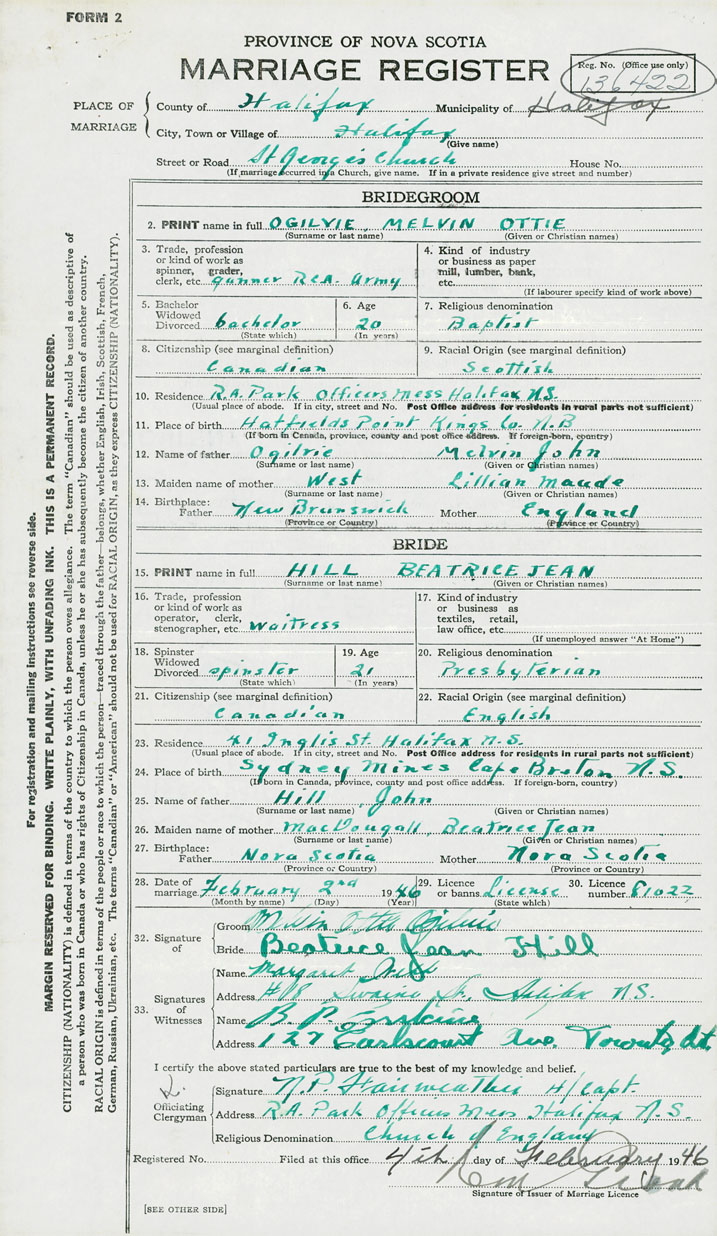 FORM 2
PROVINCE OF NOVA SCOTIA
MARRIAGE REGISTER
Reg. No. (Office use only)
136422
PLACE OF MARRIAGE
County of Halifax Municipality of Halifax
City, Town or Village of Halifax
(Give name)
Street or Road St George's Church House No.
(If marriage occurred in a Church, give name. If in a private residence give street and number)
BRIDEGROOM
2. PRINT name in full OGILVIE, MELVIN OTTIE
(Surname or last name) (Given or Christian names)
3. Trade, profession or kind of work as spinner, grader, clerk, etc. gunner RCA. Army
4. Kind of industry or business as paper mill, lumber, bank, etc.
(If labourer specify kind of work above)
5. Bachelor Widowed Divorced bachelor
(State which)
6. Age 20
(In years)
7. Religious denomination
Baptist
8. Citizenship (see marginal definition)
Canadian
9. Racial Origin (see marginal definition)
Scottish
10. Residence R.A. Park Officers Mess Halifax N.S.
(Usual place of abode. If in city, street and No. Post Office address for residents in rural parts not sufficient)
11. Place of birth Hatfields Point Kings Co. N.B
(If born in Canada, province, county and post office address. If foreign-born, country)
12. Name of father Ogilvie Melvin John
(Surname or last name) (Given or Christian names)
13. Maiden name of mother West Lillian Maude
(Surname or last name) (Given or Christian names)
14. Birthplace: Father New Brunswick Mother England
(Province or Country) (Province or Country)
BRIDE
15. PRINT name in full HILL BEATRICE JEAN
(Surname or last name) (Given or Christian names)
16. Trade, profession or kind of work as operator, clerk, stenographer, etc. waitress
17. Kind of industry or business as textiles, retail, law office, etc.
(If unemployed answer "At Home")
18. Spinster Widowed Divorced spinster
(State which)
19. Age 21
(In years)
20. Religious denomination
Presbyterian
21. Citizenship (see marginal definition)
Canadian
22. Racial Origin (see marginal definition)
English
23. Residence 41 Inglis St. Halifax N.S.
(Usual place of abode. If in city, street and No. Post Office address for residents in rural parts not sufficient)
24. Place of birth Sydney Mines Cape Breton N.S.
(If born in Canada, province, county and post office address. If foreign-born, country)
25. Name of father Hill, John
(Surname or last name) (Given or Christian names)
26. Maiden name of mother MacDougall, Beatrice Jean
(Surname or last name) (Given or Christian names)
27. Birthplace: Father Nova Scotia Mother Nova Scotia
(Province or Country) (Province or Country)
28. Date of marriage February 2nd 1946
(Month by name) (Day) (Year)
29. Licence or banns License
(State which)
30. Licence number 81022
32. Signature of
Groom Melvin Otto Ogilvie
Bride Beatrice Jean Hill
33. Signatures of Witnesses
Name Margaret
Address #18 St, Halifax N.S.
Name B. P. Erskine
Address 127 Earlscourt Ave. Toronto, Ont.
I certify the above stated particulars are true to the best of my knowledge and belief.
Officiating Clergyman
Signature N.P. Fairweather H/Capt.
Address R.A. Park Officers Mess Halifax N.S.
Religious Denomination Church of England
Registered No. Filed at this office 4th day of February 1946
Signature of Issuer of Marriage Licence
[SEE OTHER SIDE]
For registration and mailing instructions see reverse side.
MARGIN RESERVED FOR BINDING. WRITE PLAINLY, WITH UNFADING INK. THIS IS A PERMANENT RECORD.
CITIZENSHIP (NATIONALITY) is defined in terms of the country to which the person owes allegiance. The term "Canadian" should be used as descriptive of
a person who was born in Canada or who has rights of Citizenship in Canada, unless he or she has subsequently become the citizen of another country.
RACIAL ORIGIN is defined in terms of the people or race to which the person—traced through the father—belongs, whether English, Irish, Scottish, French,
German, Russian, Ukrainian, etc. The terms "Canadian" or "American" should not be used for RACIAL ORIGIN, as they express CITIZENSHIP (NATIONALITY).